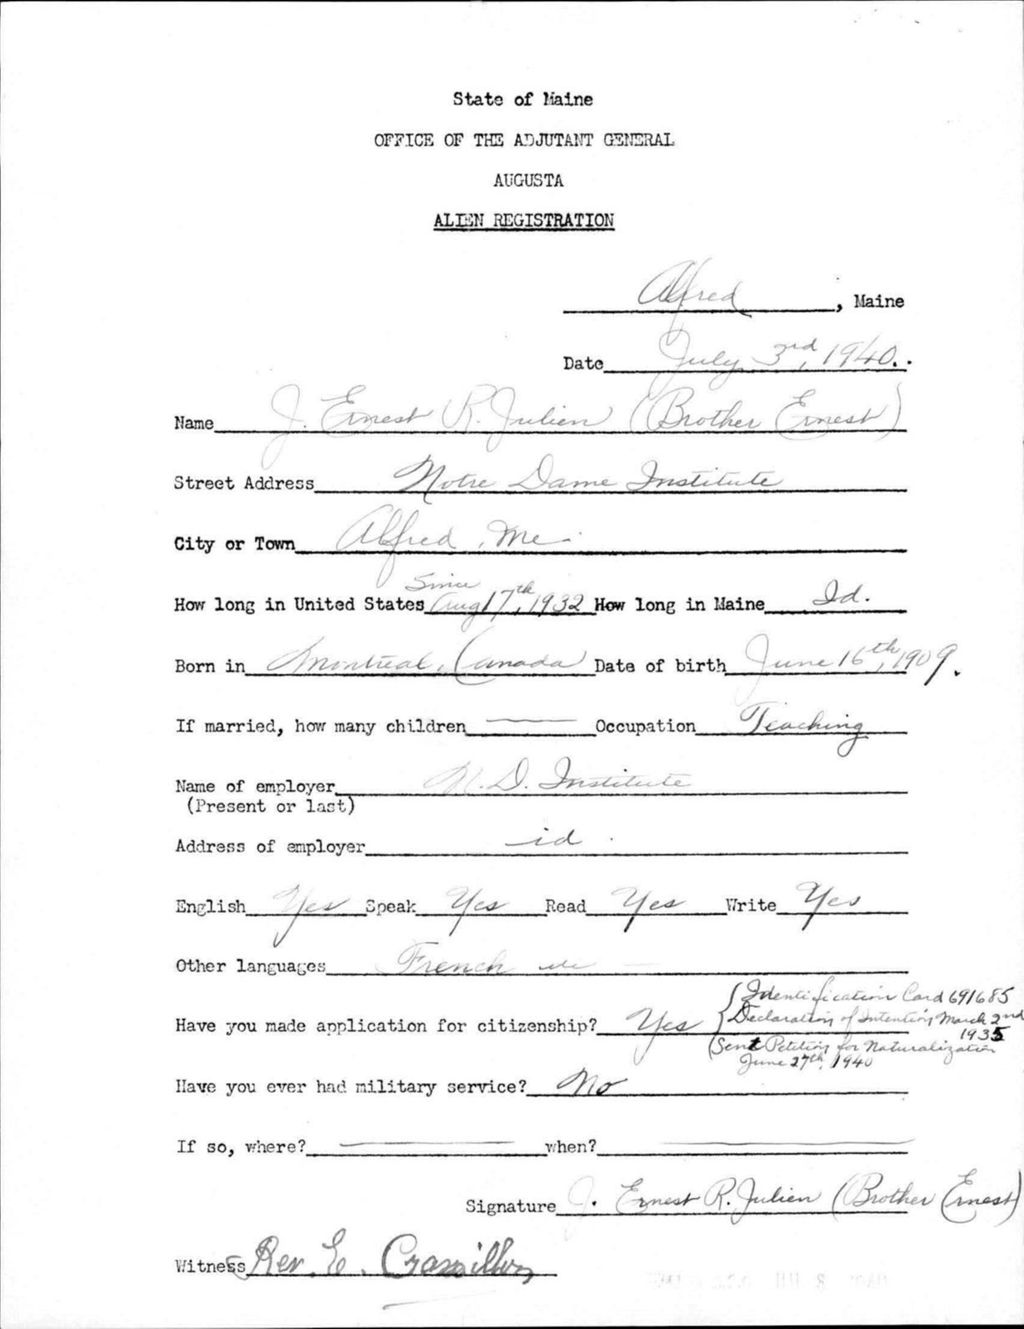 State of Maine
OFFICE OF THE ADJUTANT GENERAL
AUGUSTA
ALIEN REGISTRATION
Alfred, Maine
Date July 3rd, 1940.
Name J. Ernest R. Julien (Brother Ernest)
Street Address Notre Dame Institute
City or Town Alfred, Me.
How long in United States Since Aug 17th, 1932 How long in Maine Id.
Born in Montreal, Canada Date of birth June 16th, 1909.
If married, how many children Occupation Teaching
Name of employer N. D. Institute
(Present or last)
Address of employer id.
English Yes Speak Yes Read Yes Write Yes
Other languages French
Identification Card 691685
Have you made application for citizenship? Yes Declaration of Intention, March 2nd
1935
Sent Petition for Naturalization
June 27th, 1940
Have you ever had military service? No
If so, where? when?
Signature J. Ernest R. Julien (Brother Ernest)
Witness Rev. E.